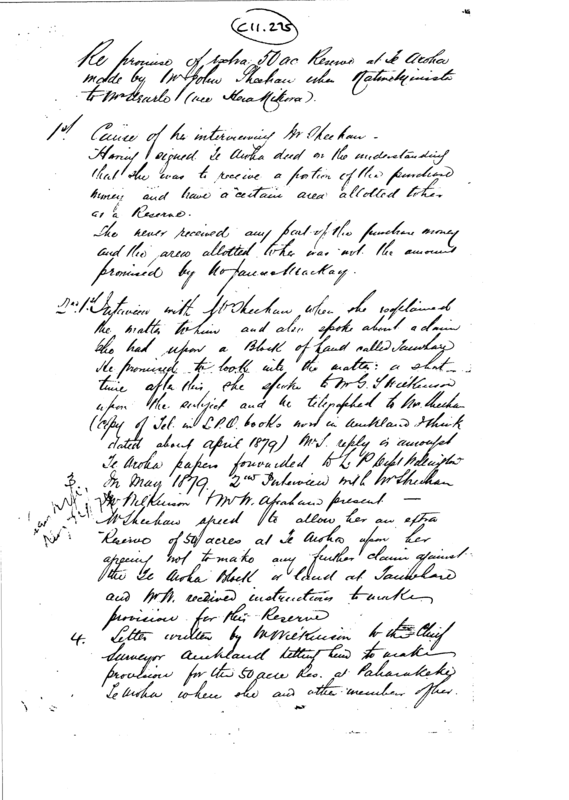 C11.225
Re promise of extra 50 ac Reserve at Te Aroha
made by Mr John Sheehan when Native Minister
to Mrs (nee Hera Nikora).
1st. Cause of her interviewing Mr Sheehan –
Having signed Te Aroha deed on the understanding
that she was to receive a portion of the purchase
money and have a certain area allotted to her
as a Reserve.
She never received any part of the purchase money
and the area allotted to her was not the amount
promised by Mr James Mackay.
1st Interview with Mr Sheehan when she explained
the matter to him and also spoke about a claim
she had upon a Block of Land called Tauwhare
He promised to look into the matter: a short
time after this, she spoke to Mr G. T Wilkinson
upon the subject and he telegraphed to Mr Sheehan
(copy of Tel. in L.P.O. books now in Auckland I think
dated about April 1879) Mr S. reply is amongst
Te Aroha papers forwarded to L P Dept Wellington
In May 1879, 2nd Interview with Mr Sheehan
Mr Wilkinson & Mr W. Grahame present —
Mr Sheehan agreed to allow her an extra
Reserve of 50 acres at Te Aroha upon her
agreeing not to make any further claim against
the Te Aroha Block or land at Tauwhare
and Mr W. received instructions to make
provision for this Reserve
4. Letter written by Mr Wilkinson to the Chief
Surveyor Auckland telling him to make
provision for the 50 acre Res. at
Te Aroha where she and other members of her